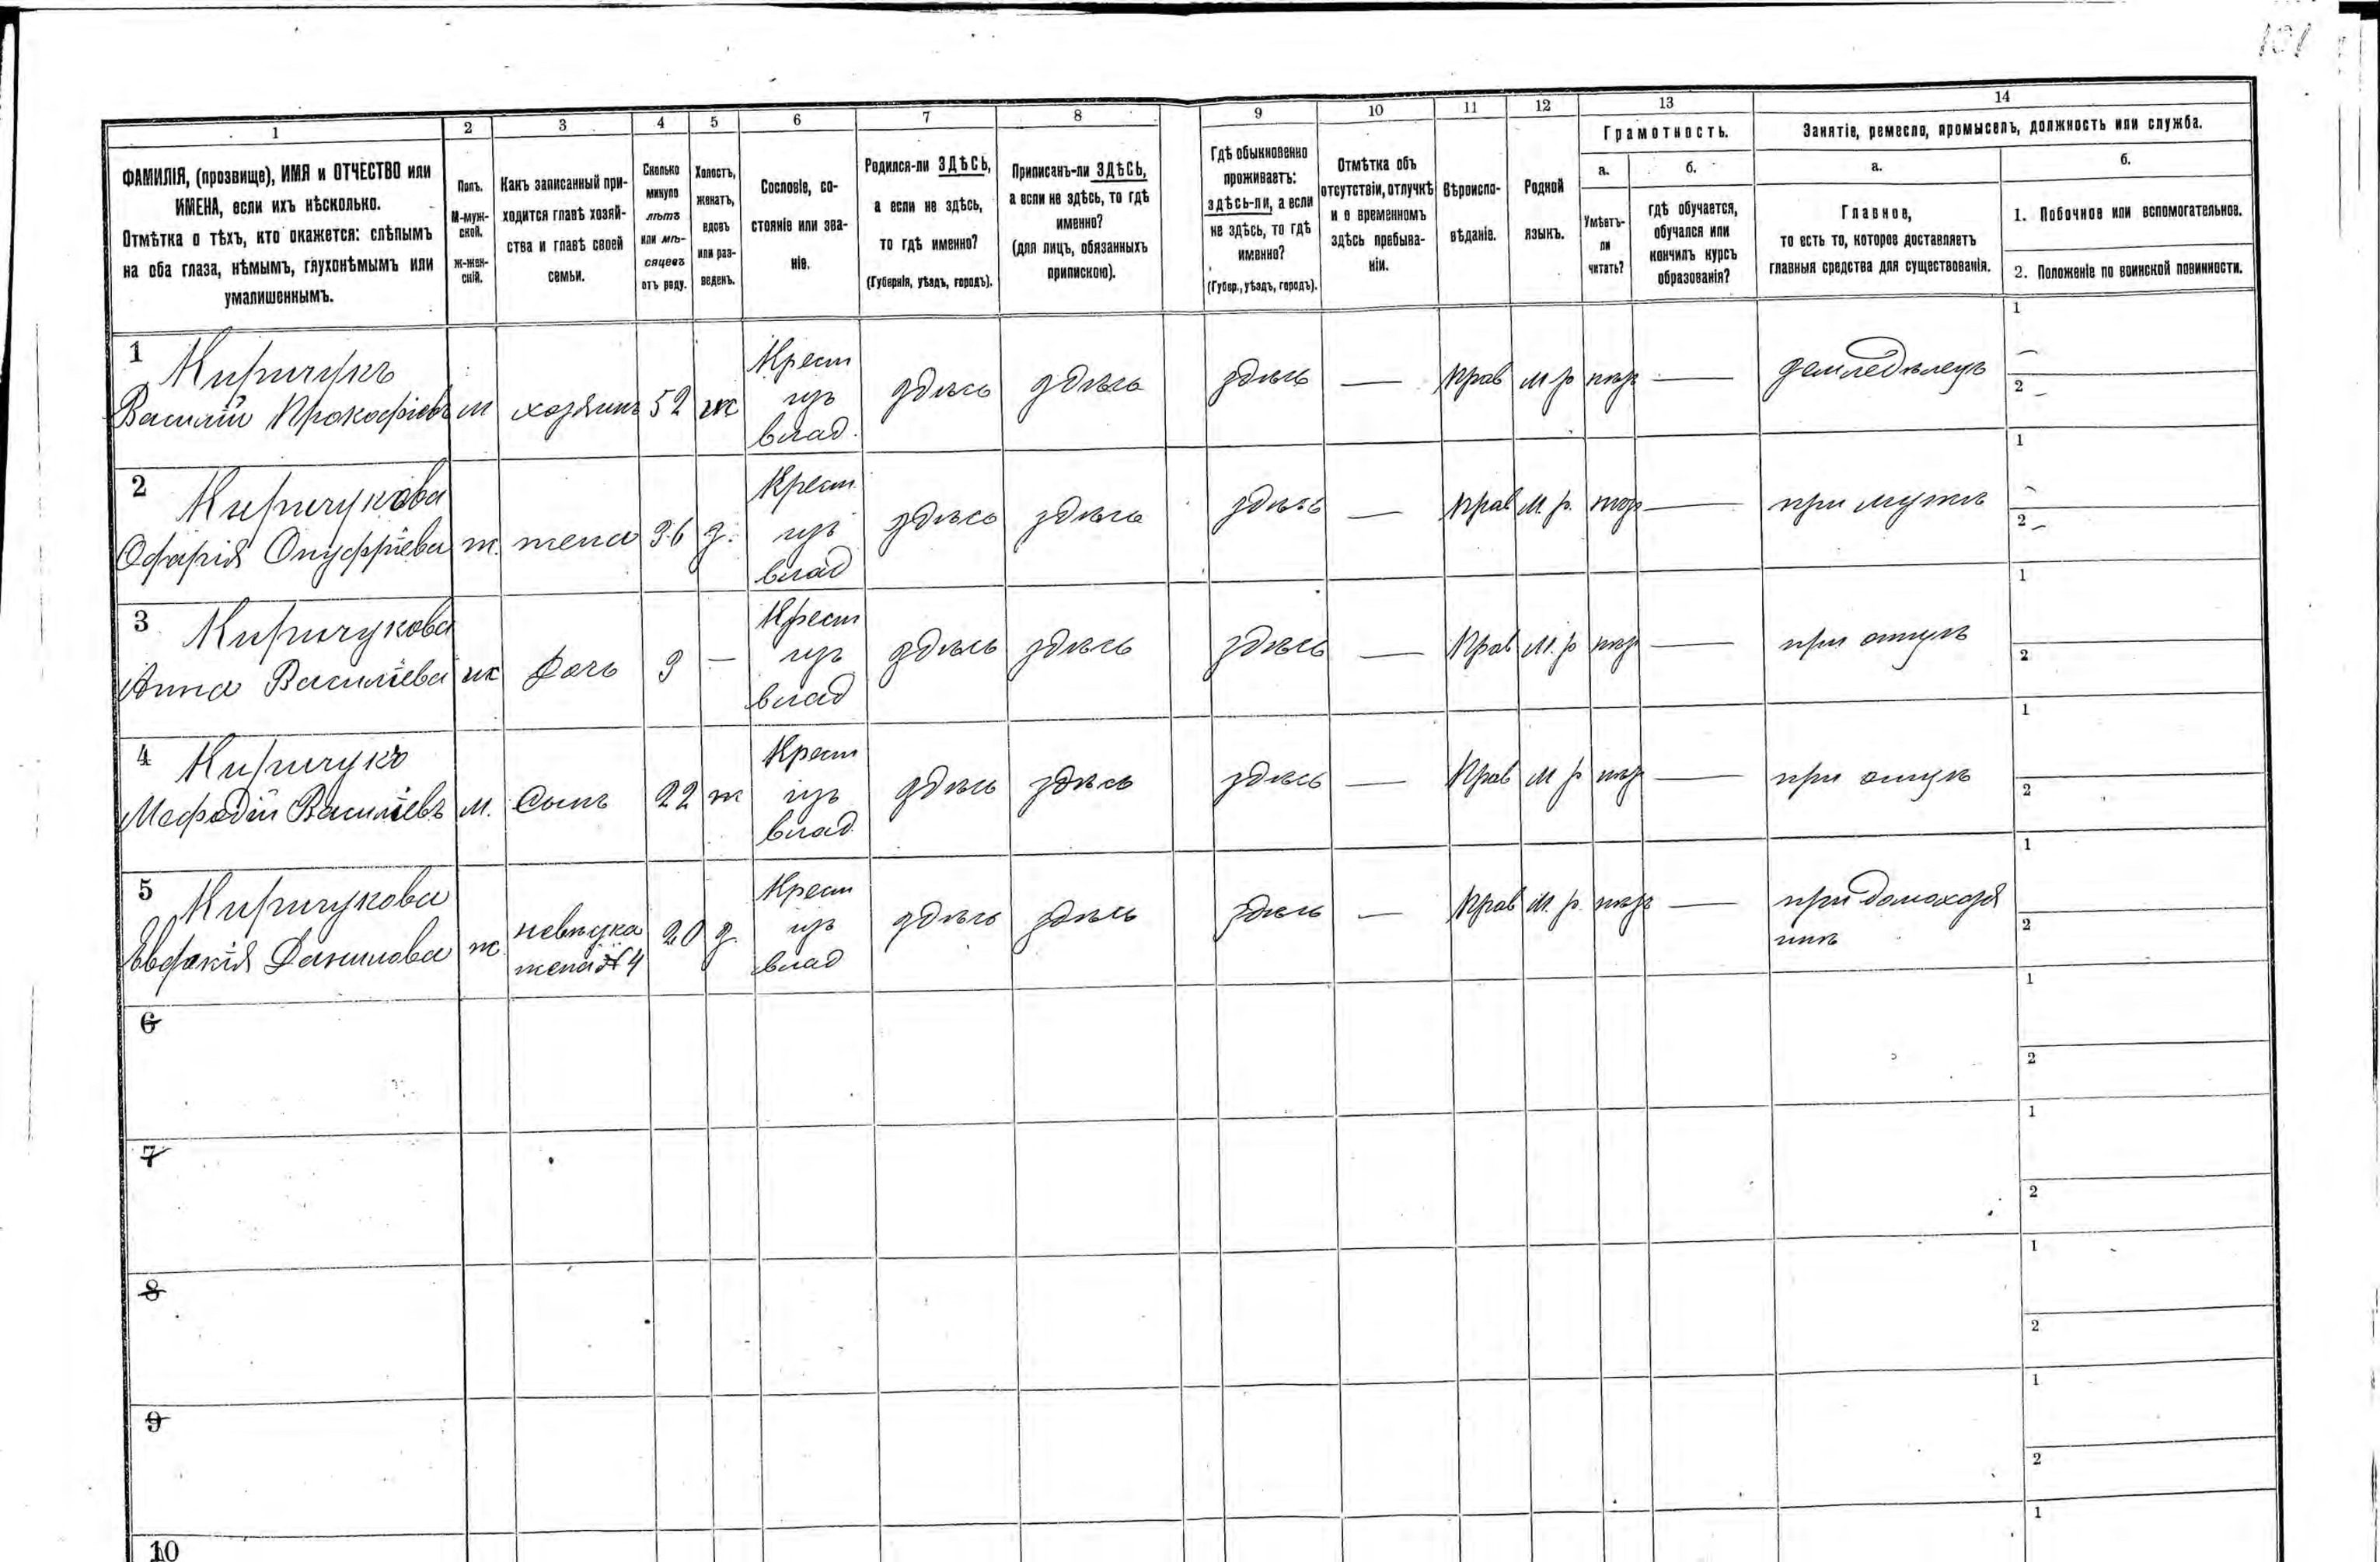 101
1 2 3 4 5 6 7 8 9 10 11 12 13 14
ФАМИЛІЯ, (прозвище), ИМЯ и ОТЧЕСТВО или
ИМЕНА, если ихъ нѣсколько.
Отмѣтка о тѣхъ, кто окажется: слѣпымъ
на оба глаза, нѣмымъ, глухонѣмымъ или
умалишеннымъ.
Полъ.
М-муж-
ской.
ж-жен-
скій.
Какъ записанный при-
ходится главѣ хозяй-
ства и главѣ своей
семьи.
Сколько
минуло
лѣтъ
или мѣ-
сяцевъ
отъ роду.
Холостъ,
женатъ,
вдовъ
или раз-
веденъ.
Сословіе, со-
стояніе или зва-
ніе.
Родился-ли ЗДѢСЬ,
а если не здѣсь,
то гдѣ именно?
(Губернія, уѣздъ, городъ).
Приписанъ-ли ЗДѢСЬ,
а если не здѣсь, то гдѣ
именно?
(для лицъ, обязанныхъ
припискою).
Гдѣ обыкновенно
проживаетъ:
здѣсь-ли, а если
не здѣсь, то гдѣ
именно?
(Губер., уѣздъ, городъ).
Отмѣтка объ
отсутствіи, отлучкѣ
и о временномъ
здѣсь пребыва-
ніи.
Вѣроиспо-
вѣданіе.
Родной
языкъ.
Грамотность.
а.
Умѣетъ-
ли
читать?
б.
гдѣ обучается,
обучался или
кончилъ курсъ
образованія?
Занятіе, ремесло, промыселъ, должность или служба.
а.
Главное,
то есть то, которое доставляетъ
главныя средства для существованія.
б.
1. Побочное или вспомогательное.
2. Положеніе по воинской повинности.
1 Киричукъ
Василій Прокофіевъ м хозяинъ 52 ж Крест из влад. здѣсь здѣсь здѣсь — Прав м р нѣт — земледѣлецъ 1 — 2 —
2 Киричукова
Онуфріева ж. жена 36 з. Крест из влад здѣсь здѣсь здѣсь — Прав м. р. — при мужѣ 1 — 2 —
3 Киричукова
Анна Василіева ж дочь 9 — Крест из влад здѣсь здѣсь здѣсь — Прав м. р — при отцѣ 1 2
4 Киричукъ
Мефодій Василіевъ м. Сынъ 22 ж Крест из влад здѣсь здѣсь здѣсь — Прав м р — при отцѣ 1 2
5 Киричукова
Евдокія Данилова ж невѣстка жена № 4 20 з. Крест из влад здѣсь здѣсь здѣсь — Прав м. р. — при домохозя
инѣ 1 2
6 1 2
7 1 2
8 1 2
9 1 2
10 1